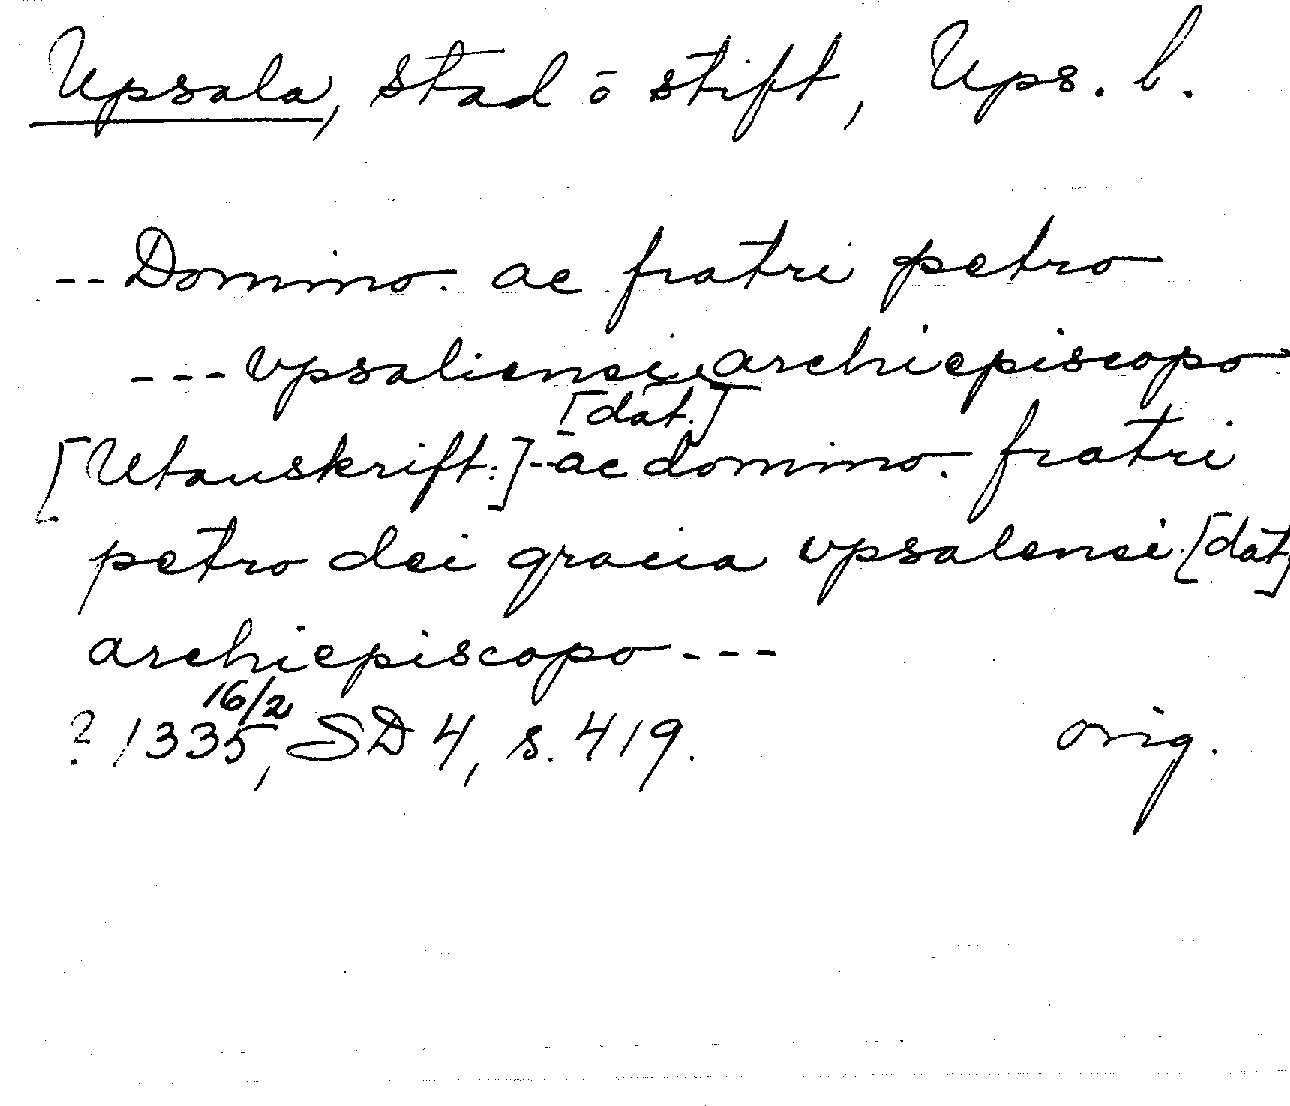 Upsala, stad ō stift, Ups. l.
-- Domino. ac fratri petro
--- vpsaliensi archiepiscopo
[dat.]
[Utanskrift:] -- ac domino. fratri
petro dei gracia vpsalensi [dat]
archiepiscopo ---
16/2
? 1335, SD 4, s. 419. orig.